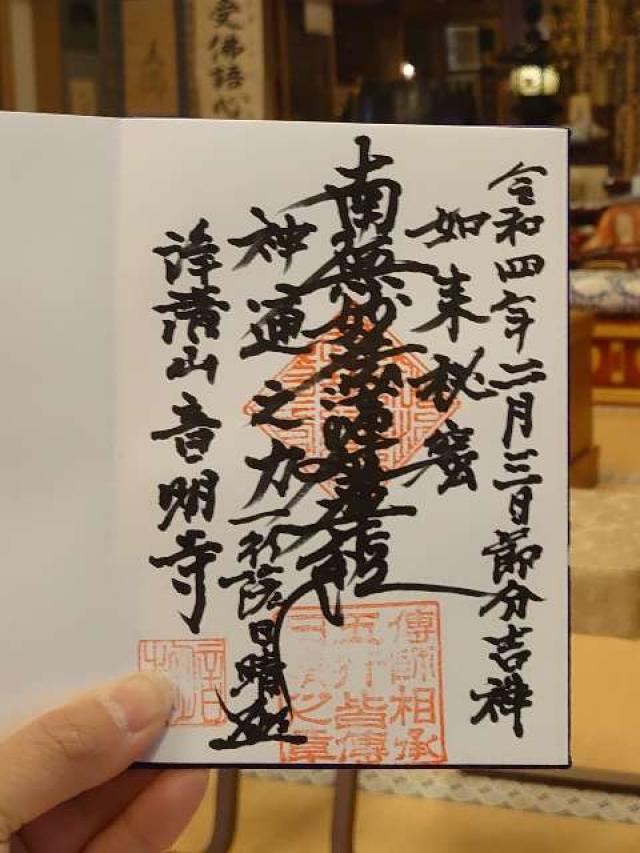 令和四年二月三日節分吉祥
如来秘密
南無妙法蓮華経
神通之力
日晴
浄清山 音明寺
傳師相承
五行皆傳
受佛語心